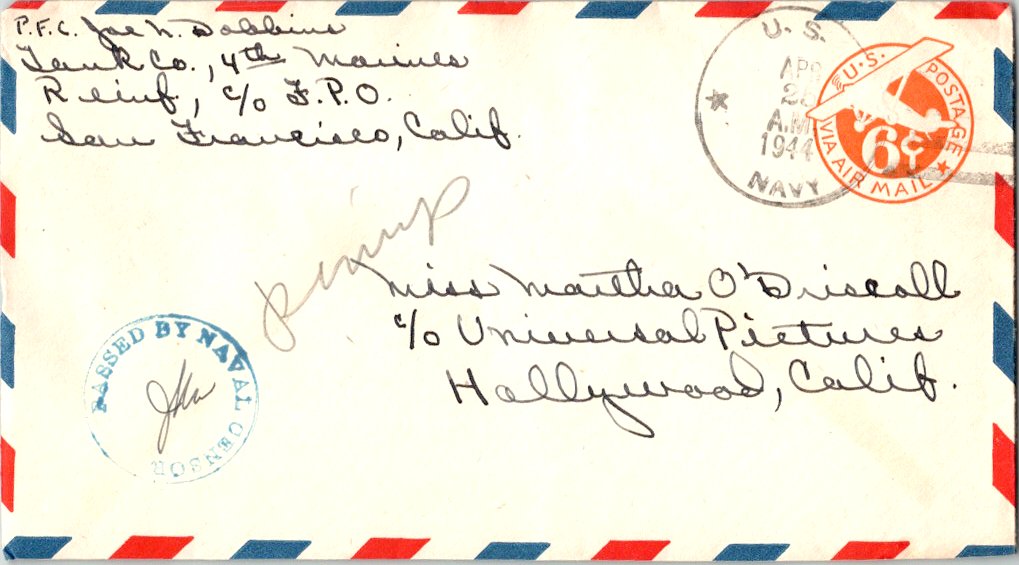 P.F.C. Joe N. Dobbins
Tank Co., 4th Marines
Reinf, c/o F.P.O.
San Francisco, Calif.
U. S.
APR
A.M
1944
NAVY
U.S. POSTAGE
6¢
VIA AIR MAIL
pinup
Miss Martha O'Driscoll
c/o Universal Pictures
Hollywood, Calif.
PASSED BY NAVAL CENSOR